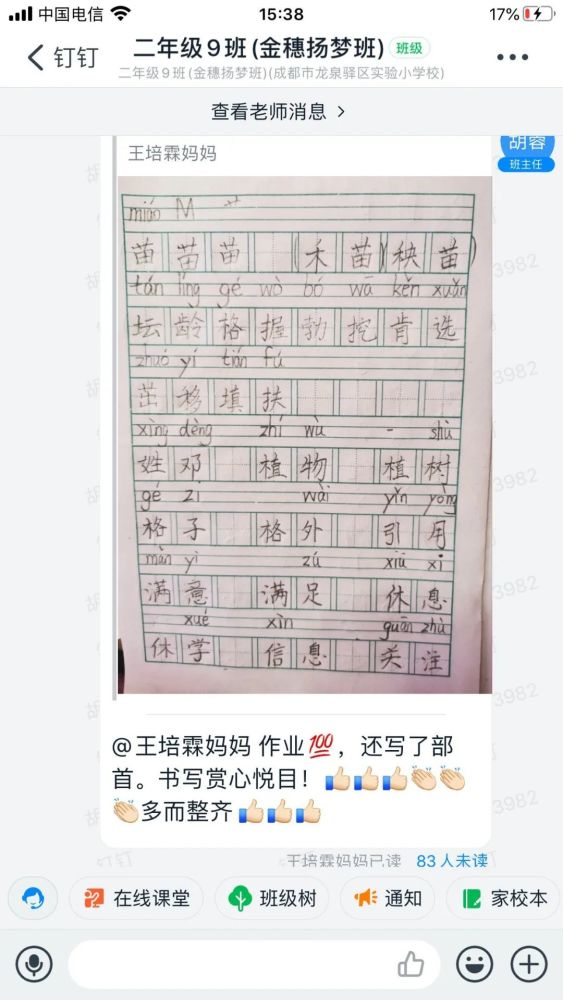 中国电信 15:38 17%
钉钉 二年级9班(金穗扬梦班) 班级
二年级9班(金穗扬梦班)(成都市龙泉驿区实验小学校)
查看老师消息
王培霖妈妈
胡蓉
班主任
miáo M 艹
苗 苗 苗 (禾 苗)(秧 苗)
tán líng gé wò bó wā kěn xuǎn
坛 龄 格 握 勃 挖 肯 选
zhuó yí tián fú
茁 移 填 扶
xìng dèng zhí wù - shù
姓 邓 植 物 植 树
gé zi wài yǐn yòng
格 子 格 外 引 用
mǎn yì zú xiū xi
满 意 满 足 休 息
xué xìn guān zhù
休 学 信 息 关 注
@王培霖妈妈 作业💯，还写了部
首。书写赏心悦目！👍🏻👍🏻👍🏻👏🏻👏🏻
👏🏻多而整齐👍🏻👍🏻👍🏻
王培霖妈妈已读 83人未读
在线课堂 班级树 通知 家校本